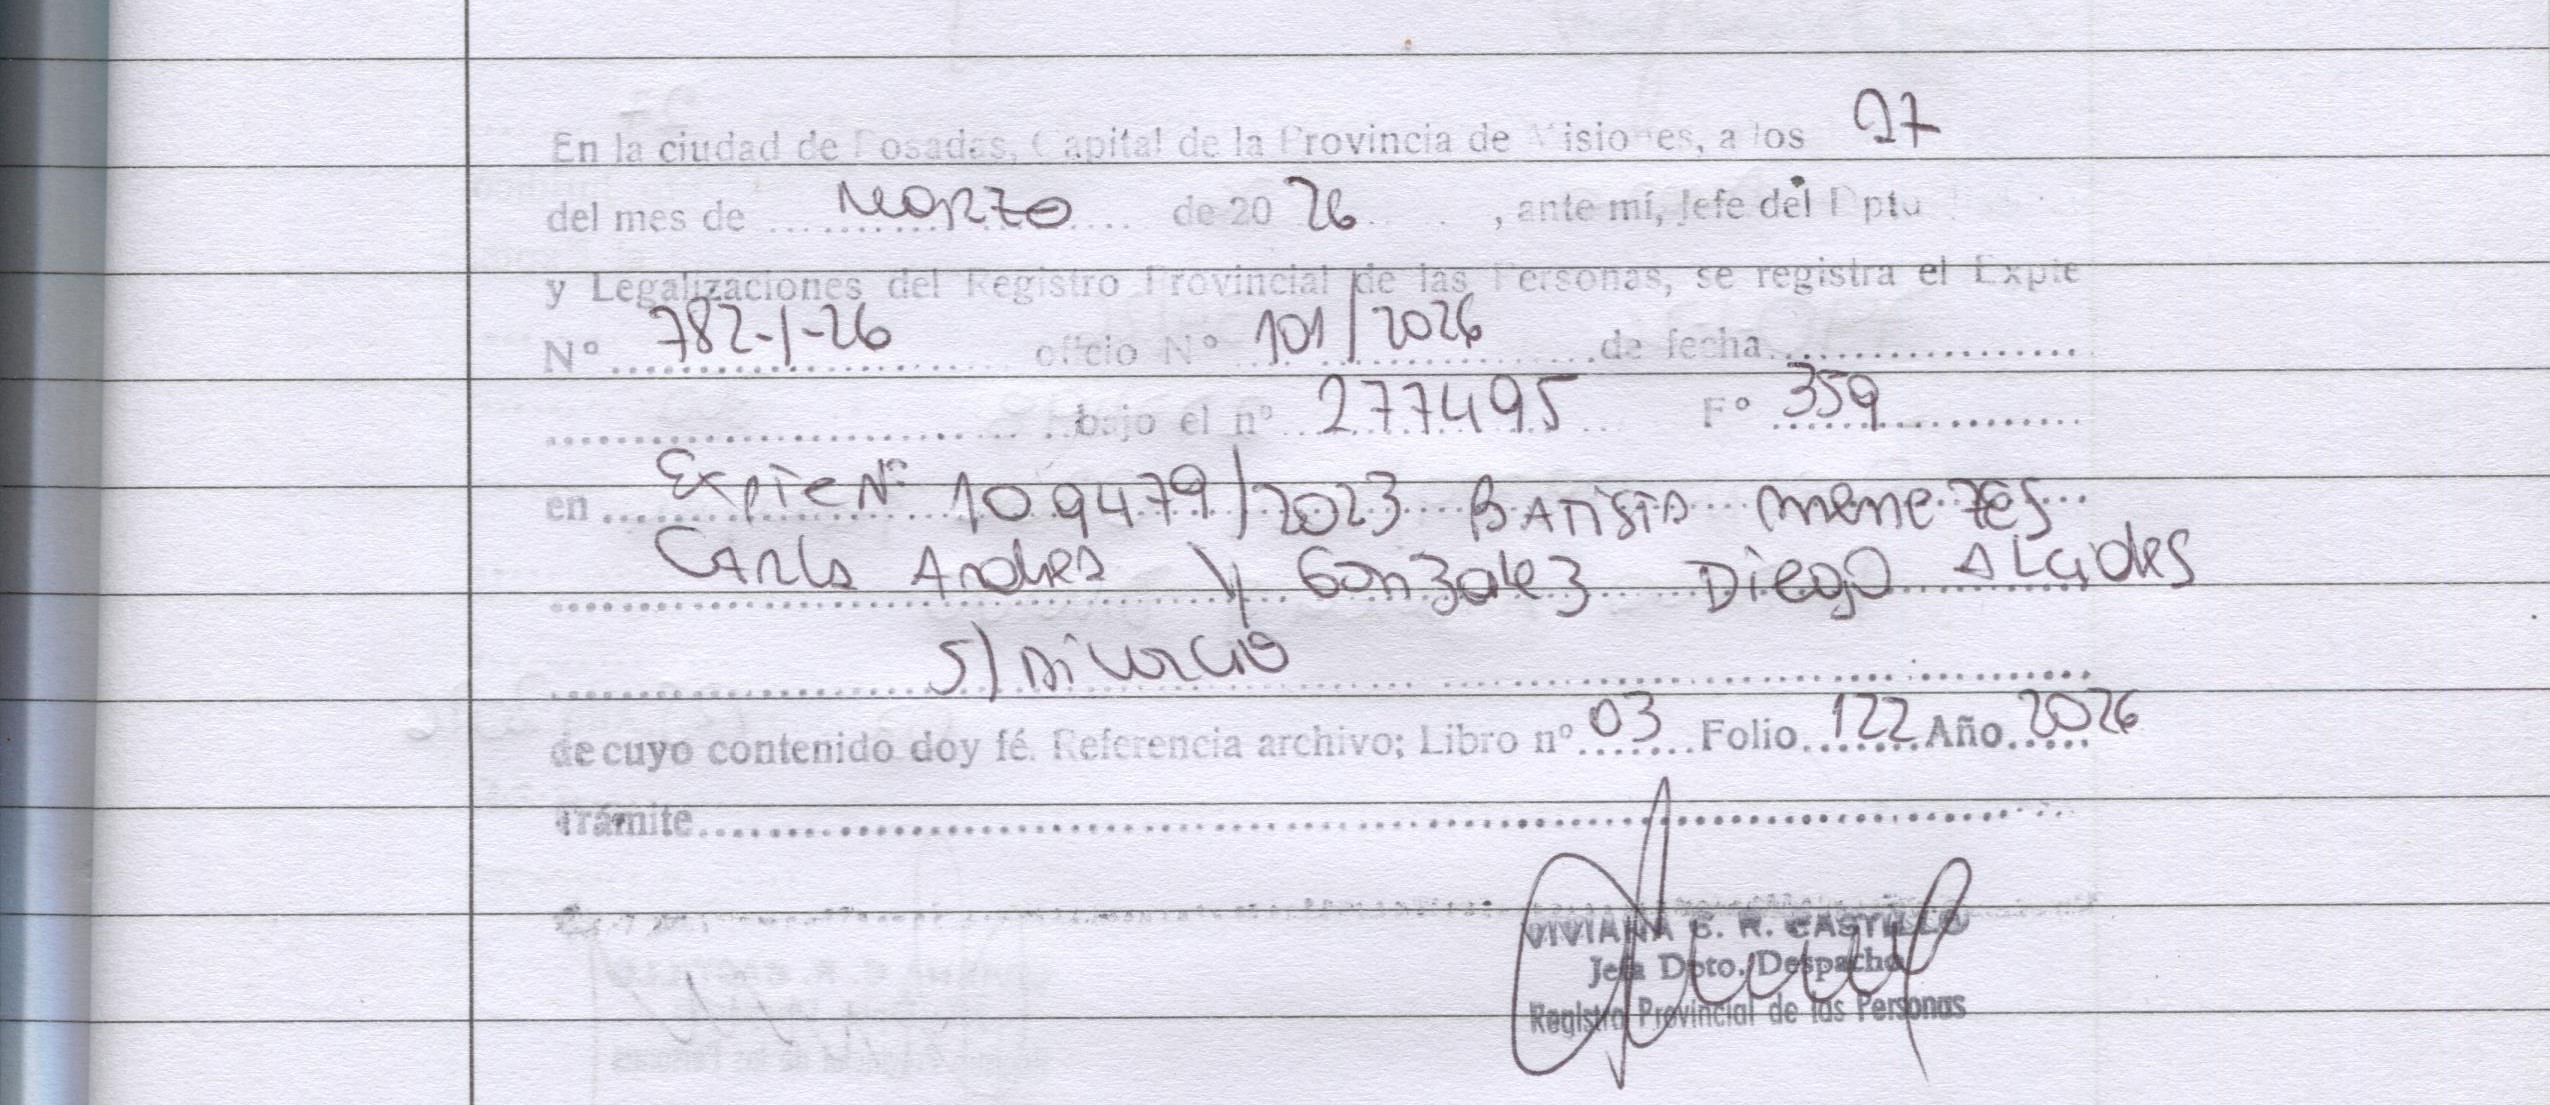 En la ciudad de Posadas, Capital de la Provincia de Misiones, a los 27
del mes de Marzo de 20 26 , ante mí, Jefe del Dpto
y Legalizaciones del Registro Provincial de las Personas, se registra el Expte
N° 782-1-26 oficio N° 101/2026 de fecha
bajo el n° 277495 F° 359
en Expte N° 109479/2023 Batista Menezes
Carla Andrea y Gonzalez Diego Alcides
S/ Divorcio
de cuyo contenido doy fé. Referencia archivo; Libro n° 03 Folio 122 Año 2026
Trámite
VIVIANA R. CASTILLO
Jefa Dpto. Despacho
Registro Provincial de las Personas